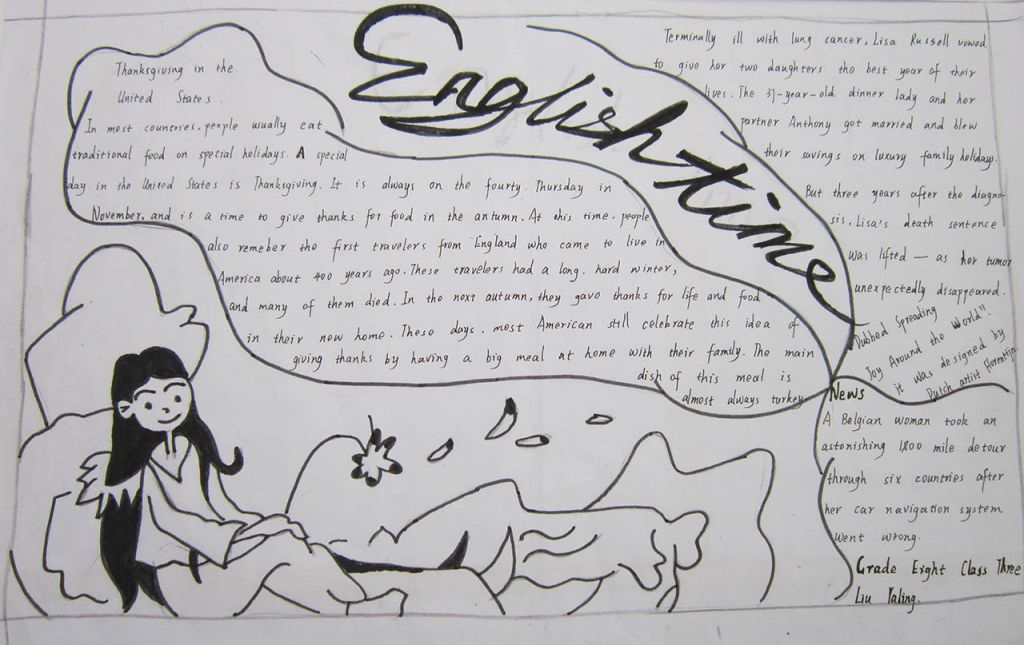 English time
Thanksgiving in the
United States.
In most countries, people usually eat
traditional food on special holidays. A special
day in the United States is Thanksgiving. It is always on the fourty. Thursday in
November, and is a time to give thanks for food in the antumn. At this time, people
also remeber the first travelers from England who came to live in
America about 400 years ago. These travelers had a long, hard winter,
and many of them died. In the next autumn, they gave thanks for life and food
in their new home. These days, most American still celebrate this idea of
giving thanks by having a big meal at home with their family. The main
dish of this meal is
almost always turkey
Terminally ill with lung cancer, Lisa Russell vowed
to give her two daughters the best year of their
lives. The 37-year-old dinner lady and her
partner Anthony got married and blew
their savings on luxury family holidays.
But three years after the diagno-
sis, Lisa's death sentence
was lifted — as her tumor
unexpectedly disappeared.
Dubbed Spreading
Joy Around the World".
it was designed by
Dutch artist Florentijn
News
A Belgian woman took an
astonishing 1800 mile detour
through six countries after
her car navigation system
went wrong.
Grade Eight Class Three
Liu Yaling.